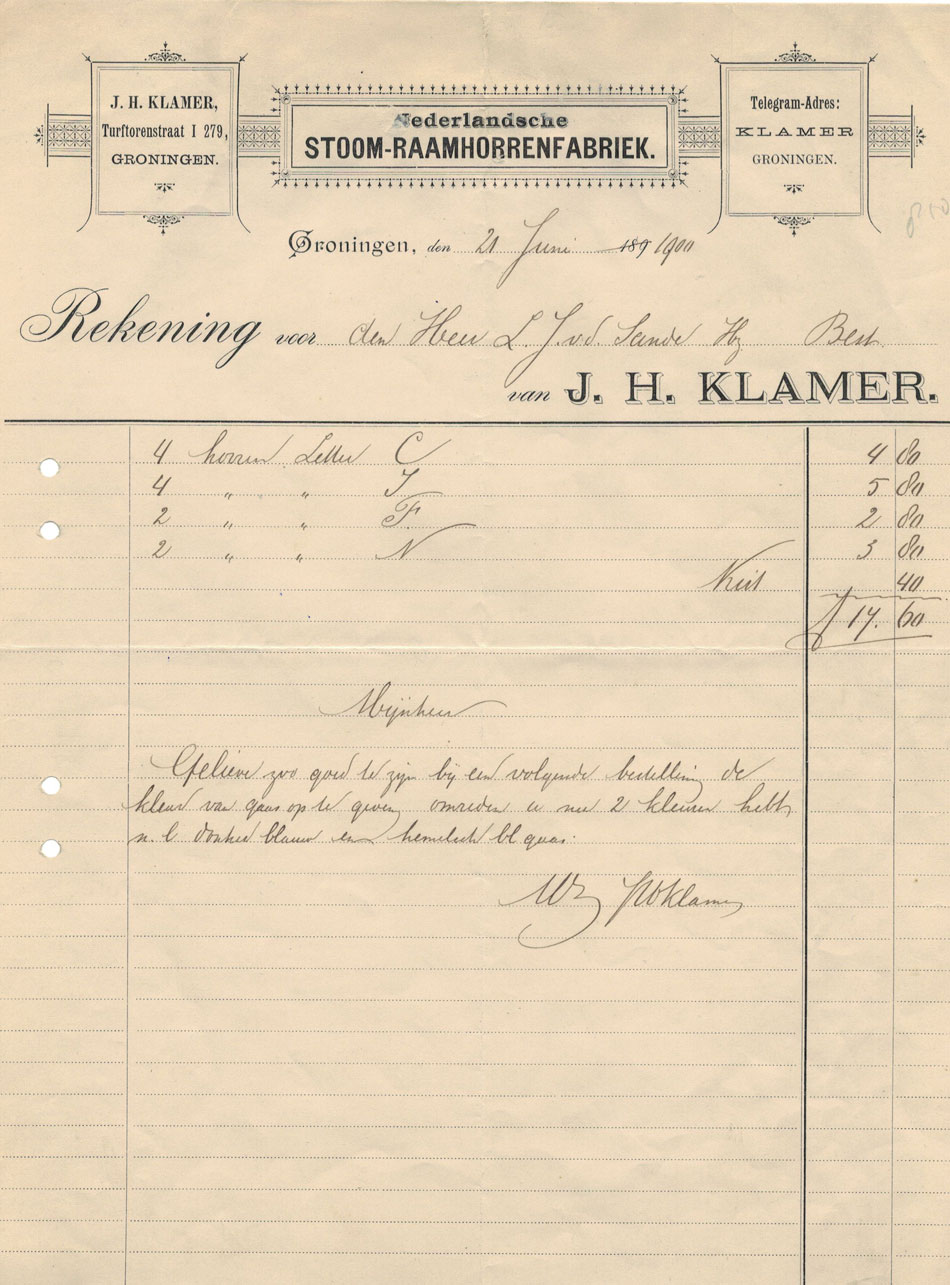 J. H. KLAMER,
Turftorenstraat I 279,
GRONINGEN.
Nederlandsche
STOOM-RAAMHORRENFABRIEK.
Telegram-Adres:
KLAMER
GRONINGEN.
Groningen, den 21 Juni 189 1900
Rekening voor den Heer L. J. v d Sande Hz Best
van J. H. KLAMER.
4 horren Letter C 4 80
4 " " J 5 80
2 " " F 2 80
2 " " N 3 80
Kist 40
f 17. 60
Mijnheer
Gelieve zoo goed te zijn bij een volgende bestelling de
kleur van gaas op te geven omreden u nu 2 kleuren hebt
n. l donker blauw en hemelsch bl gaas.
JHKlamer